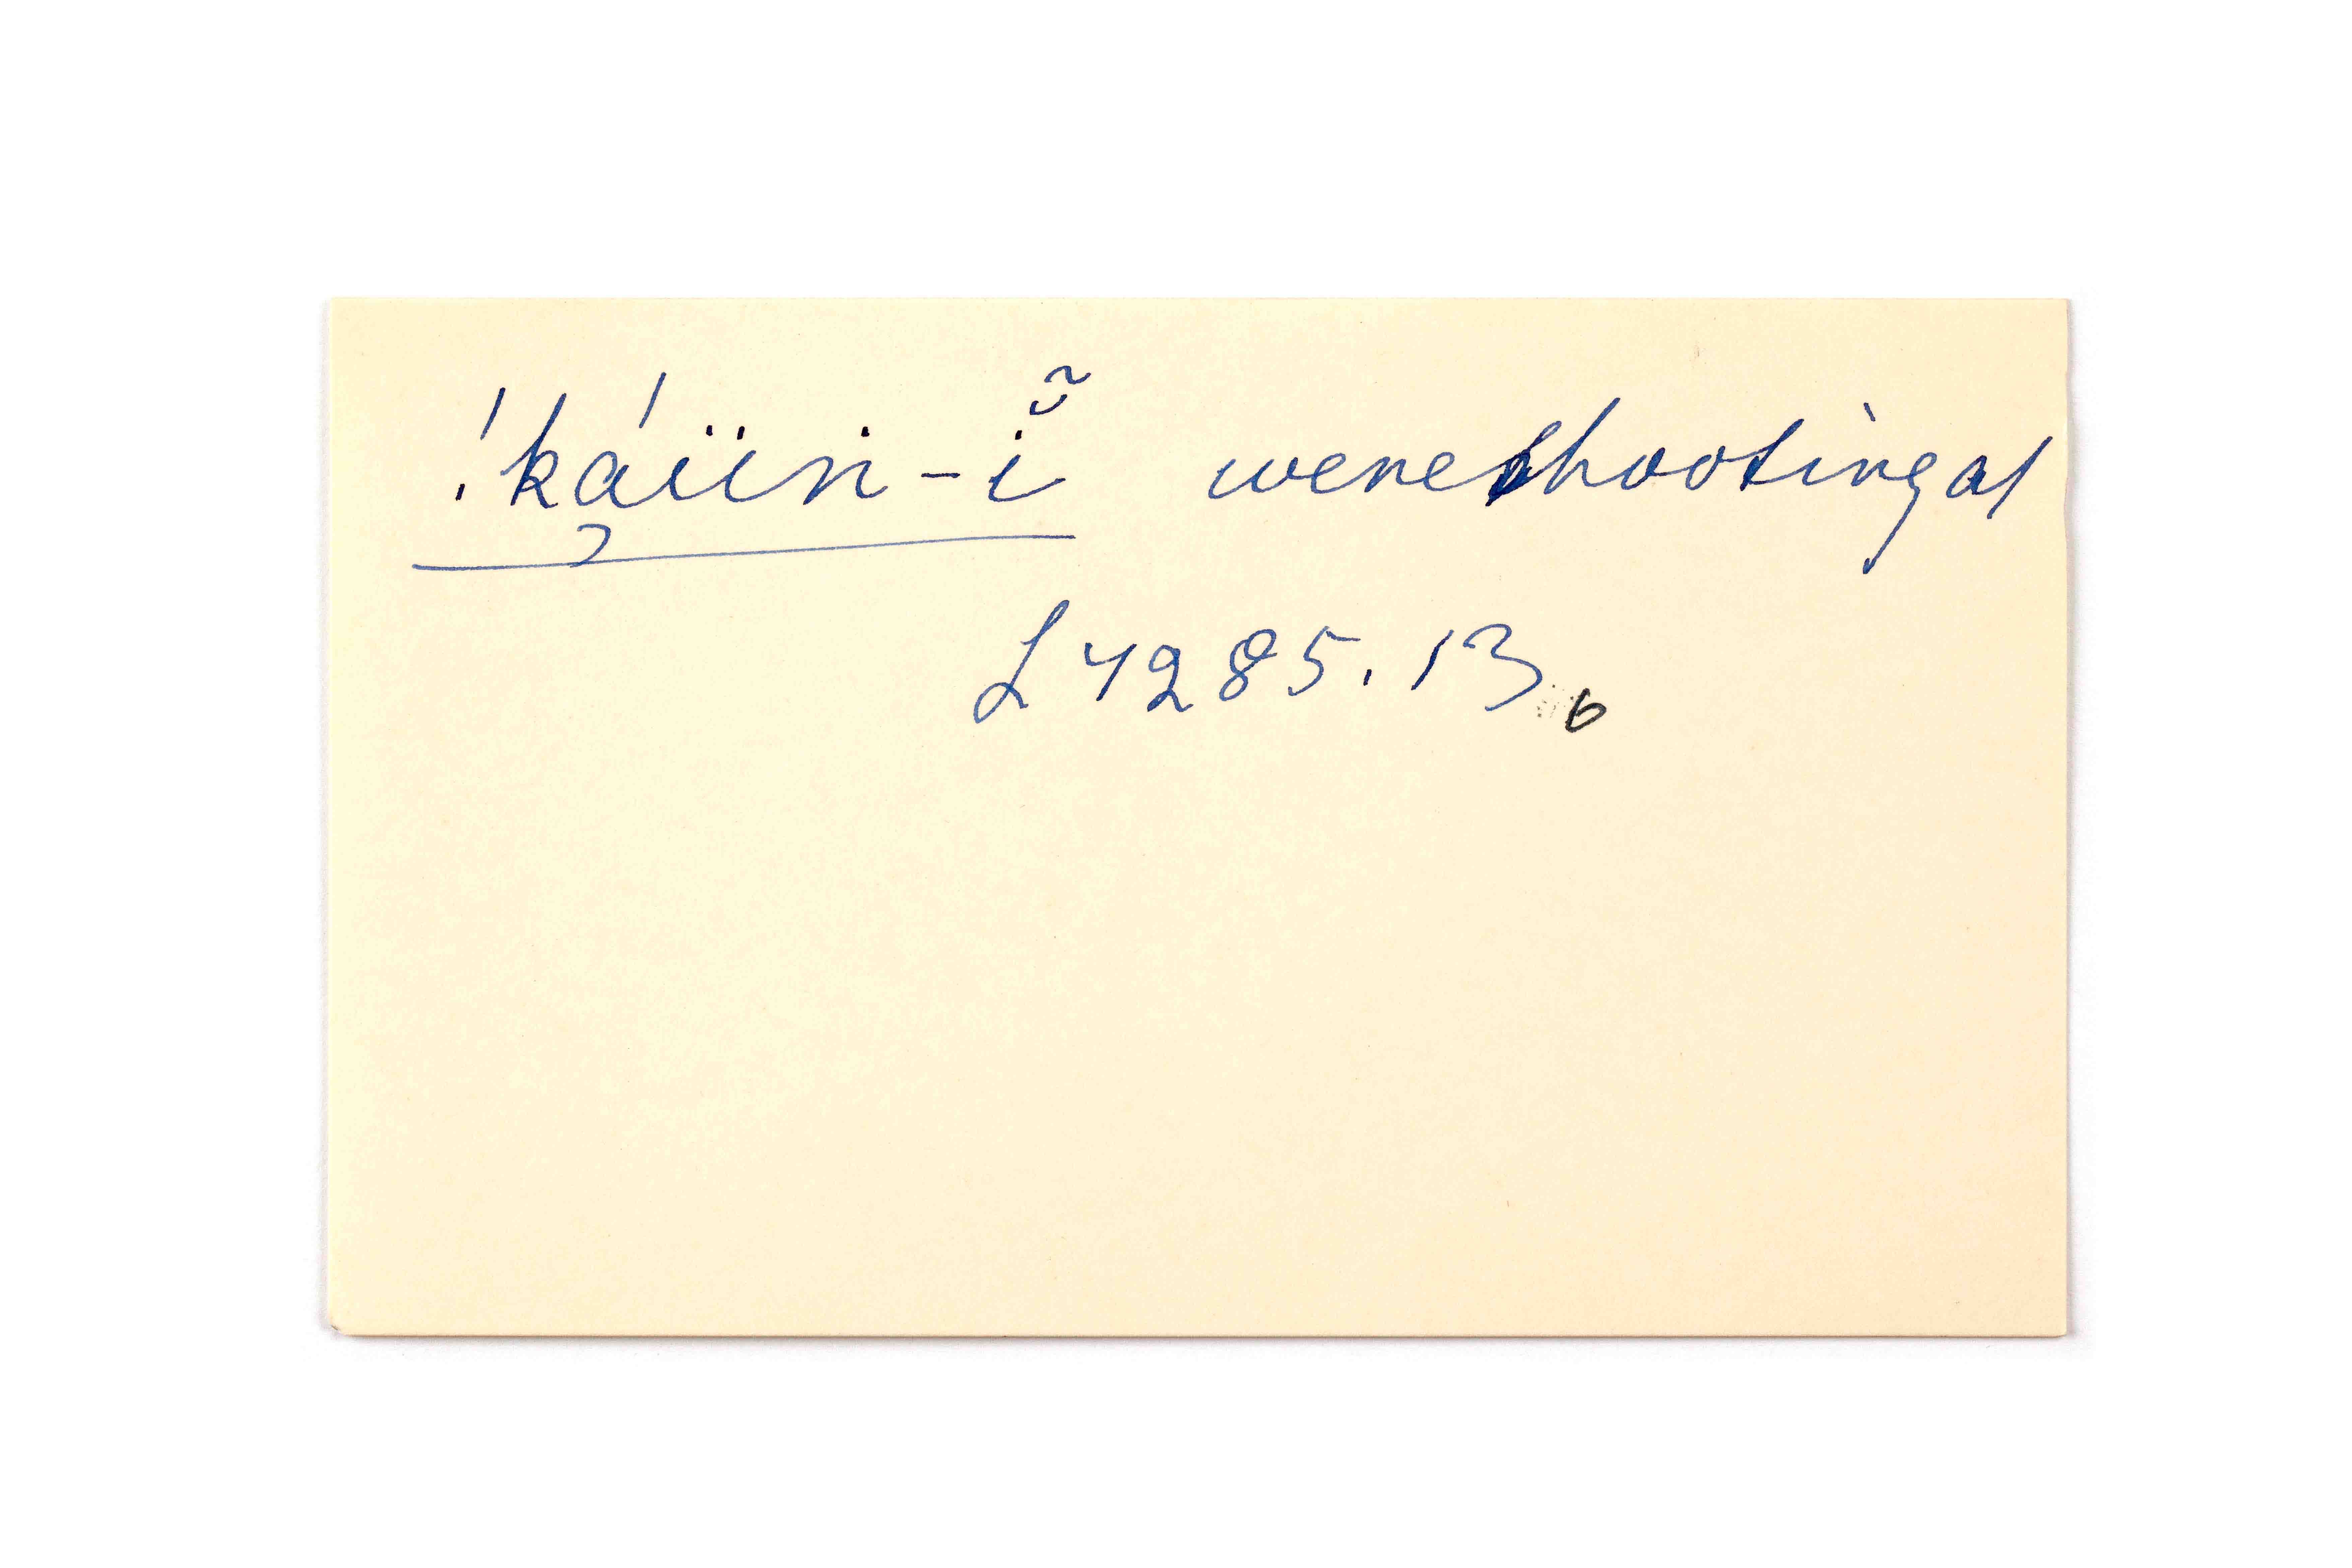 !k̢áïïn-ĭ̃ were shooting at
L 4285.13 6